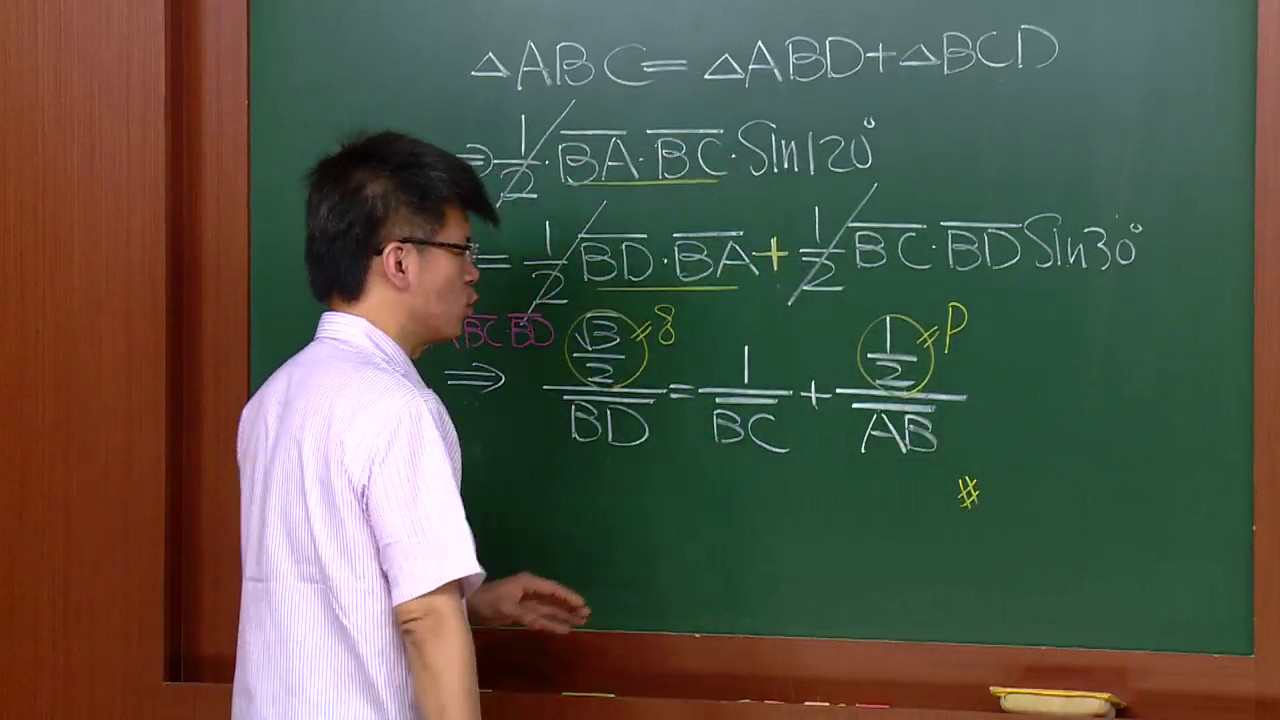 △ABC=△ABD+△BCD
⇒ 1/2·BA·BC·Sin120°
= 1/2 BD·BA + 1/2 BC·BD Sin30°
BC·BD
⇒ (√3/2)/BD = 1/BC + (1/2)/AB
8
P
#